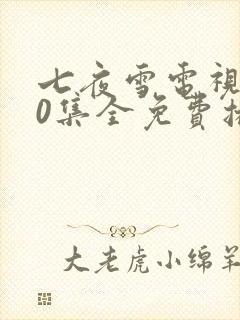 七夜雪電視
0集全免費播
大老虎小绵羊